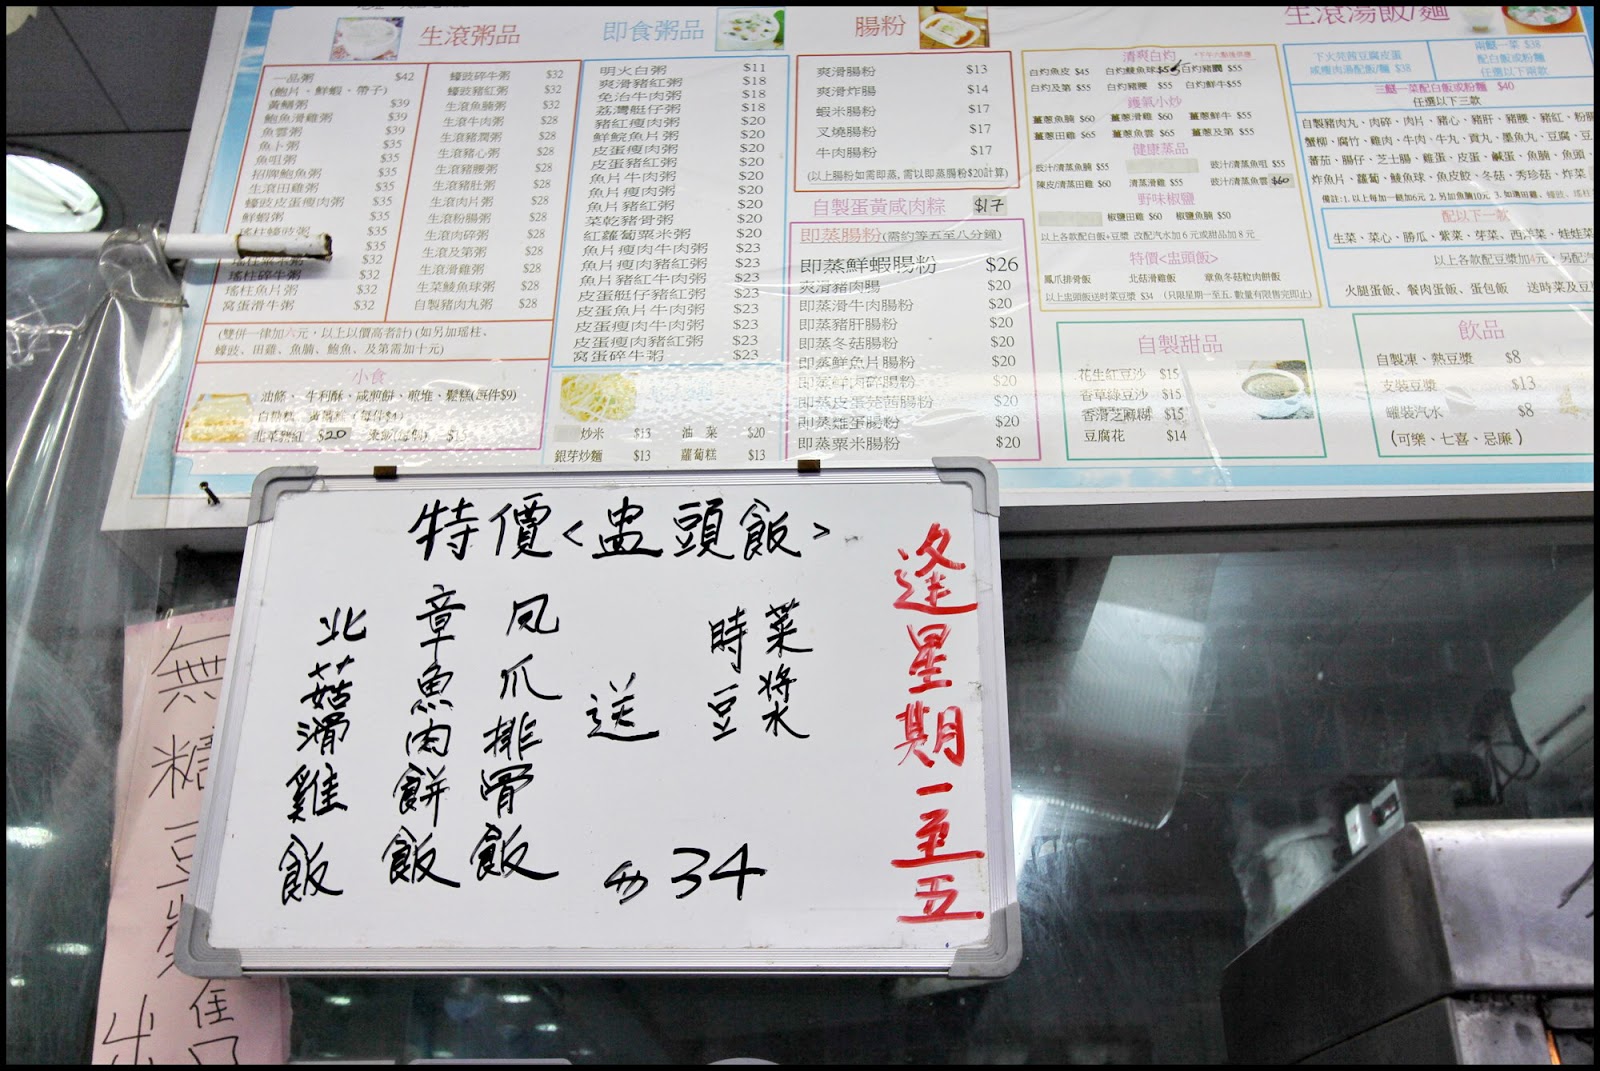 生滾粥品
一品粥 $42
(鮑片、鮮蝦、帶子)
黃鱔粥 $39
鮑魚滑雞粥 $39
魚雲粥 $39
魚卜粥 $35
魚咀粥 $35
招牌鮑魚粥 $35
生滾田雞粥 $35
蠔豉皮蛋瘦肉粥 $35
鮮蝦粥 $35
瑤柱蠔豉粥 $35
$35
瑤柱粟米粥 $32
瑤柱碎牛粥 $32
瑤柱魚片粥 $32
窩蛋滑牛粥 $32
蠔豉碎牛粥 $32
蠔豉豬紅粥 $32
生滾魚腩粥 $32
生滾牛肉粥 $28
生滾豬潤粥 $28
生滾豬心粥 $28
生滾豬腰粥 $28
生滾豬肚粥 $28
生滾肉片粥 $28
生滾粉腸粥 $28
生滾肉碎粥 $28
生滾及第粥 $28
生滾滑雞粥 $28
生菜鯪魚球粥 $28
自製豬肉丸粥 $28
(雙併一律加六元，以上以價高者計) (如另加瑤柱、
蠔豉、田雞、魚腩、鮑魚、及第需加十元)
小食
油條、牛利酥、咸煎餅、煎堆、鬆糕(每件$9)
$20
即食粥品
明火白粥 $11
爽滑豬紅粥 $18
免治牛肉粥 $18
荔灣艇仔粥 $18
豬紅瘦肉粥 $20
鮮鯇魚片粥 $20
皮蛋瘦肉粥 $20
皮蛋豬紅粥 $20
魚片牛肉粥 $20
魚片瘦肉粥 $20
魚片豬紅粥 $20
菜乾豬骨粥 $20
紅蘿蔔粟米粥 $20
魚片瘦肉牛肉粥 $23
魚片瘦肉豬紅粥 $23
魚片豬紅牛肉粥 $23
皮蛋艇仔豬紅粥 $23
皮蛋魚片牛肉粥 $23
皮蛋瘦肉牛肉粥 $23
皮蛋瘦肉豬紅粥 $23
窩蛋碎牛粥 $23
炒米 $13 油菜 $20
銀芽炒麵 $13 蘿蔔糕 $13
腸粉
爽滑腸粉 $13
爽滑炸腸 $14
蝦米腸粉 $17
叉燒腸粉 $17
牛肉腸粉 $17
(以上腸粉如需即蒸,需以即蒸腸粉$20計算)
自製蛋黃咸肉粽 $17
即蒸腸粉(需約等五至八分鐘)
即蒸鮮蝦腸粉 $26
爽滑豬肉腸 $20
即蒸滑牛肉腸粉 $20
即蒸豬肝腸粉 $20
即蒸冬菇腸粉 $20
即蒸鮮魚片腸粉 $20
即蒸鮮肉碎腸粉 $20
即蒸皮蛋芫茜腸粉 $20
即蒸雞蛋腸粉 $20
即蒸粟米腸粉 $20
清爽白灼
白灼魚皮 $45 白灼鯪魚球 白灼豬膶 $55
白灼及第 $55 白灼豬腰 $55 白灼鮮牛 $55
鑊氣小炒
薑蔥魚腩 $60 薑蔥滑雞 $60 薑蔥鮮牛 $55
薑蔥田雞 $65 薑蔥魚雲 $65 薑蔥及第 $55
健康蒸品
豉汁/清蒸魚腩 $55 豉汁/清蒸魚咀 $55
陳皮/清蒸田雞 $60 清蒸滑雞 $55 豉汁/清蒸魚雲 $60
野味椒鹽
椒鹽田雞 $60 椒鹽魚腩 $50
以上各款配白飯+豆漿 改配汽水加 6 元或甜品加 8 元
特價<盅頭飯>
鳳爪排骨飯 北菇滑雞飯 章魚冬菇粒肉餅飯
以上盅頭飯送時菜豆漿 $34 (只限星期一至五, 數量有限售完即止)
自製甜品
花生紅豆沙 $15
香草綠豆沙 $15
香滑芝麻糊 $15
豆腐花 $14
生滾湯飯/麵
下火芫茜豆腐皮蛋
咸瘦肉湯配飯/麵 $38
兩餸一菜 $38
配白飯或粉麵
任選以下兩款
三餸一菜配白飯或粉麵 $40
任選以下三款
自製豬肉丸、肉碎、肉片、豬心、豬肝、豬腰、豬紅、粉腸
蟹柳、腐竹、雞肉、牛肉、牛丸、貢丸、墨魚丸、豆腐、豆
蕃茄、腸仔、芝士腸、雞蛋、皮蛋、鹹蛋、魚腩、魚頭、
炸魚片、蘿蔔、鯪魚球、魚皮餃、冬菇、秀珍菇、炸菜
配以下一款
生菜、菜心、勝瓜、紫菜、芽菜、西洋菜、娃娃菜
以上各款配豆漿加4元，另配汽
火腿蛋飯、餐肉蛋飯、蛋包飯 送時菜及豆
飲品
自製凍、熱豆漿 $8
支裝豆漿 $13
罐裝汽水 $8
(可樂、七喜、忌廉)
特價<盅頭飯>
逢星期一至五
時菜
豆漿
送
$34
鳳爪排骨飯
章魚肉餅飯
北菇滑雞飯
無糖豆漿